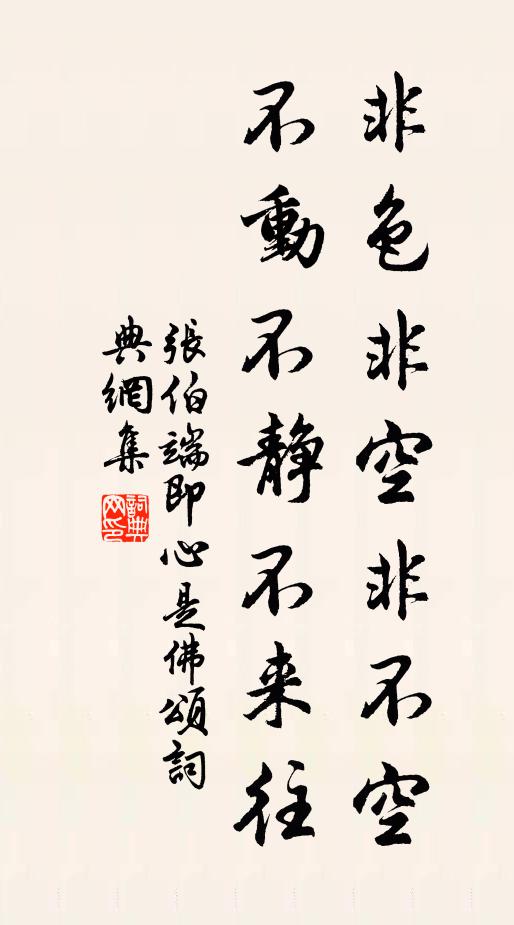 非色非空非不空
不動不静不来往
張伯端即心是佛頌詞
典網集
詞典
网印